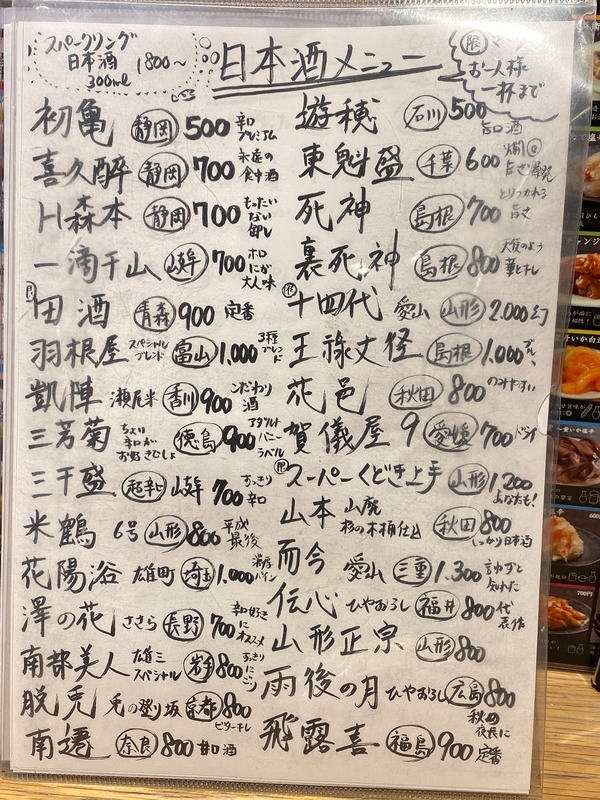 スパークリング
日本酒
300ml
1800～
日本酒メニュー
限 マーク
お一人様
一杯まで
初亀 静岡 500 辛口 プレミアム
喜久酔 静岡 700 永遠の 食中酒
H森本 静岡 700 もったい ない 卸し
一滴千山 岐阜 700 ホロ にが 大人味
限 田酒 青森 900 定番
羽根屋 スペシャル ブレンド 富山 1,000 3種 ブレンド
凱陣 瀬尾米 香川 900 こだわり 酒
三芳菊 ちょい 辛口が お好きでしょ 徳島 900 アダルト バニー ラベル
三千盛 超辛口 岐阜 700 すっきり 辛口
米鶴 6号 山形 800 平成 最後
花陽浴 雄町 埼玉 1,000 濃厚 パイン
澤の花 ささら 長野 700 辛口好き に オススメ
南部美人 雄三 スペシャル 岩手 800 すっきり にごり
脱兎 兎の登り坂 京都 800 ビターキレ
南遷 奈良 800 甘口酒
遊穂 石川 500 旨口酒
東魁盛 千葉 600 燗@ 旨さ爆発
死神 島根 700 とりつかれる 旨さ
裏死神 島根 800 大優のよう 華とキレ
限 十四代 愛山 山形 2.000 幻
王祿丈径 島根 1.000
花邑 秋田 800 のみやすい
賀儀屋 9 愛媛 700 ドライ
限 スーパーくどき上手 山形 1200 あなたも!
山本 山廃 杉の木桶仕込 秋田 800 しっかり日本酒
而今 愛山 三重 1.300 言わずと 知れた
伝心 ひやおろし 福井 800 代表作
山形正宗 山形 800
雨後の月 ひやおろし 広島 800 秋の 夜長に
飛露喜 福島 900 定番